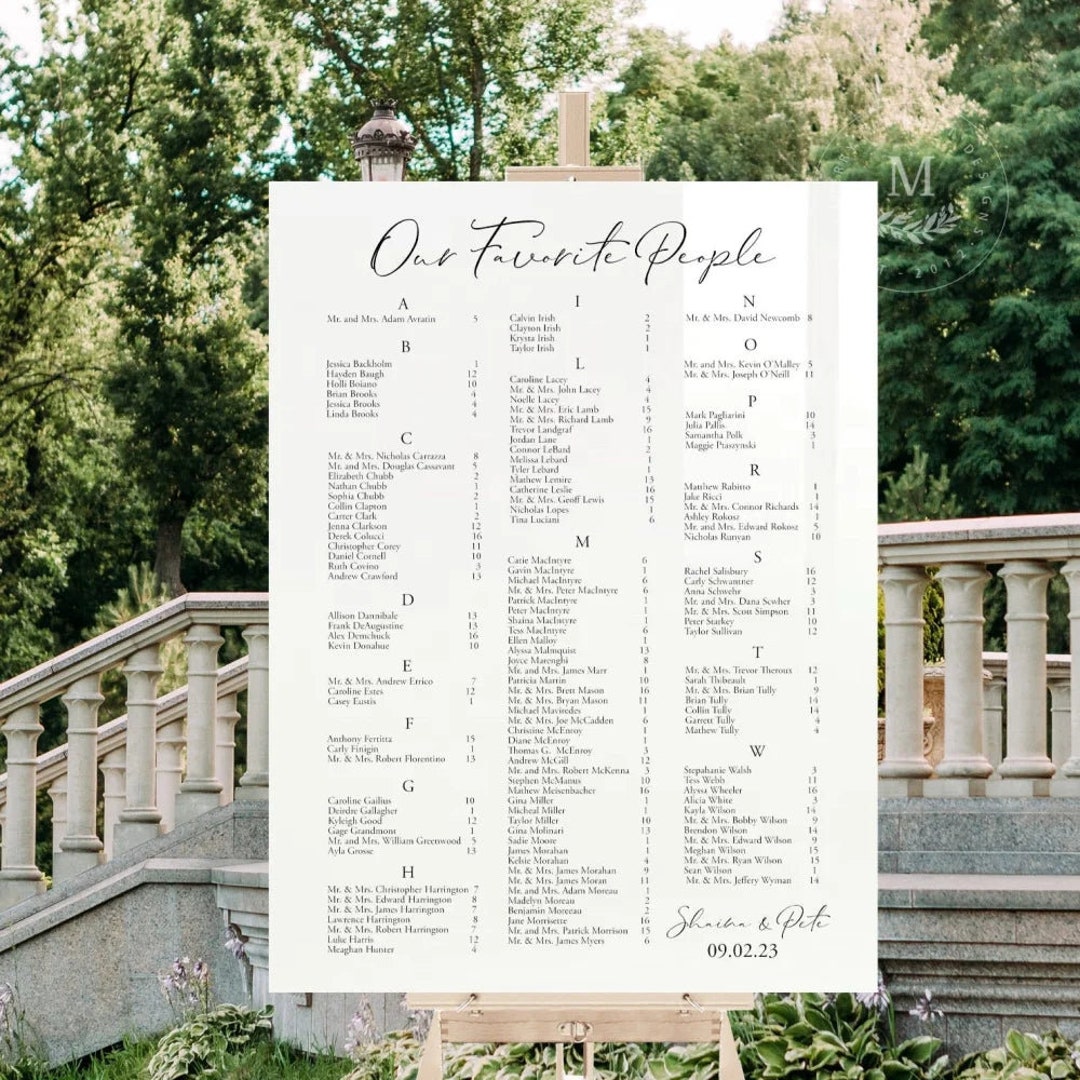 Our Favorite People
A
Mr. and Mrs. Adam Avratin 5
B
Jessica Backholm 1
Hayden Baugh 12
Holli Boiano 10
Brian Brooks 4
Jessica Brooks 4
Linda Brooks 4
C
Mr. & Mrs. Nicholas Carrazza 8
Mr. and Mrs. Douglas Cassavant 5
Elizabeth Chubb 2
Nathan Chubb 1
Sophia Chubb 2
Collin Clapton 1
Carter Clark 2
Jenna Clarkson 12
Derek Colucci 16
Christopher Corey 11
Daniel Cornell 10
Ruth Covino 3
Andrew Crawford 13
D
Allison Dannibale 13
Frank DeAugustine 13
Alex Demchuck 16
Kevin Donahue 10
E
Mr. & Mrs. Andrew Errico 7
Caroline Estes 12
Casey Eustis 1
F
Anthony Ferritta 15
Carly Finigin 1
Mr. & Mrs. Robert Florentino 13
G
Caroline Gailius 10
Deirdre Gallagher 1
Kyleigh Good 12
Gage Grandmont 1
Mr. and Mrs. William Greenwood 5
Ayla Grosse 13
H
Mr. & Mrs. Christopher Harrington 7
Mr. & Mrs. Edward Harrington 8
Mr. & Mrs. James Harrington 7
Lawrence Harrington 8
Mr. & Mrs. Robert Harrington 7
Luke Harris 12
Meaghan Hunter 4
I
Calvin Irish 2
Clayton Irish 2
Krysta Irish 1
Taylor Irish 1
L
Caroline Lacey 4
Mr. & Mrs. John Lacey 4
Noelle Lacey 4
Mr. & Mrs. Eric Lamb 15
Mr. & Mrs. Richard Lamb 9
Trevor Landgraf 16
Jordan Lane 1
Connor LeBard 2
Melissa Lebard 1
Tyler Lebard 1
Mathew Lemire 13
Catherine Leslie 16
Mr. & Mrs. Geoff Lewis 15
Nicholas Lopes 1
Tina Luciani 6
M
Catie MacIntyre 6
Gavin MacIntyre 1
Michael MacIntyre 6
Mr. & Mrs. Peter MacIntyre 6
Patrick MacIntyre 1
Peter MacIntyre 1
Shaina MacIntyre 1
Tess MacIntyre 6
Ellen Malloy 1
Alyssa Malmquist 13
Joyce Marenghi 8
Mr. and Mrs. James Marr 1
Patricia Martin 10
Mr. & Mrs. Brett Mason 16
Mr. & Mrs. Bryan Mason 11
Michael Maviredes 1
Mr. & Mrs. Joe McCadden 6
Christine McEnroy 1
Diane McEnroy 1
Thomas G. McEnroy 3
Andrew McGill 12
Mr. and Mrs. Robert McKenna 3
Stephen McManus 10
Mathew Meisenbacher 16
Gina Miller 1
Micheal Miller 1
Taylor Miller 10
Gina Molinari 13
Sadie Moore 1
James Morahan 1
Kelsie Morahan 4
Mr. & Mrs. James Morahan 9
Mr. & Mrs. James Moran 11
Mr. and Mrs. Adam Moreau 1
Madelyn Moreau 2
Benjamin Morceau 2
Jane Morrisette 16
Mr. and Mrs. Patrick Morrison 15
Mr. & Mrs. James Myers 6
N
Mr. & Mrs. David Newcomb 8
O
Mr. and Mrs. Kevin O'Malley 5
Mr. & Mrs. Joseph O'Neill 11
P
Mark Pagliarini 10
Julia Pallis 14
Samantha Polk 3
Maggie Ptaszynski 1
R
Matthew Rabitto 1
Jake Ricci 1
Mr. & Mrs. Connor Richards 14
Ashley Rokosz 1
Mr. and Mrs. Edward Rokosz 5
Nicholas Runyan 10
S
Rachel Salisbury 16
Carly Schwantner 12
Anna Schwehr 3
Mr. and Mrs. Dana Scwher 3
Mr. & Mrs. Scott Simpson 11
Peter Starkey 10
Taylor Sullivan 12
T
Mr. & Mrs. Trevor Theroux 12
Sarah Thibeault 1
Mr. & Mrs. Brian Tully 9
Brian Tully 14
Collin Tully 14
Garrett Tully 4
Mathew Tully 4
W
Stepahanie Walsh 3
Tess Webb 11
Alyssa Wheeler 16
Alicia White 3
Kayla Wilson 14
Mr. & Mrs. Bobby Wilson 9
Brendon Wilson 14
Mr. & Mrs. Edward Wilson 9
Meghan Wilson 15
Mr. & Mrs. Ryan Wilson 15
Sean Wilson 1
Mr. & Mrs. Jeffery Wyman 14
Shaina & Pete
09.02.23
M
DESIGNS
2012